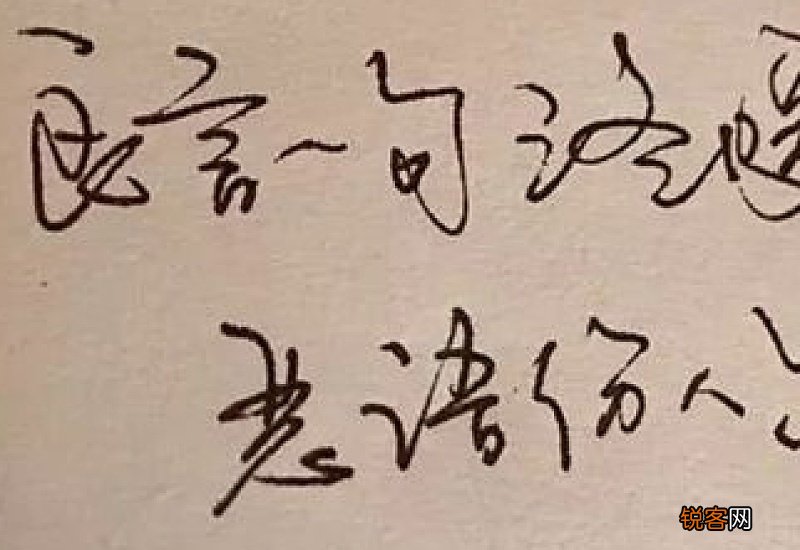 良言一句三冬暖
恶语伤人
锐客网